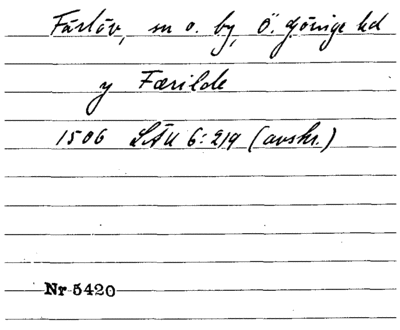 Färlöv, sn o. by, Ö. Göinge hd
y Færilde
1506 LÄU 6:219 (avskr.)
Nr 5420